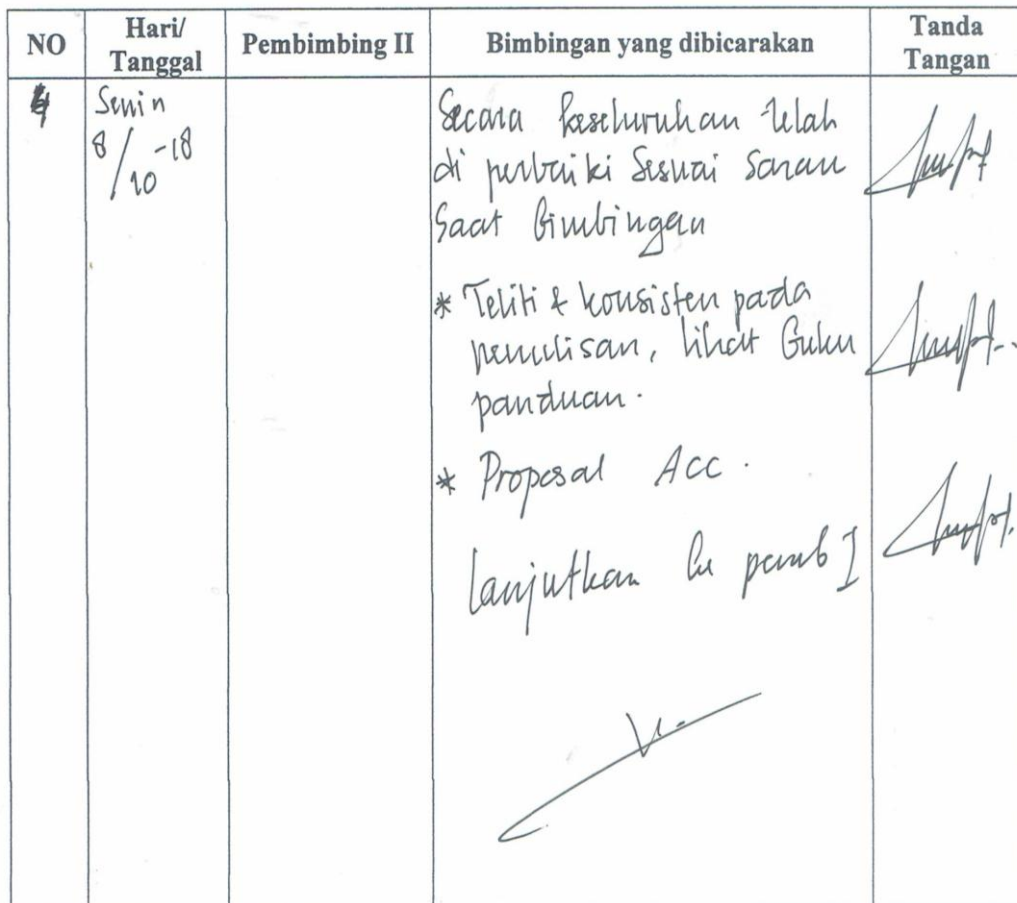 NO
Hari/
Tanggal
Pembimbing II
Bimbingan yang dibicarakan
Tanda
Tangan
4
Senin
8/10-18
Secara keseluruhan telah
di perbaiki Sesuai saran
Saat bimbingan
* Teliti & konsisten pada
penulisan, lihat buku
panduan.
* Proposal Acc.
lanjutkan ke pemb I